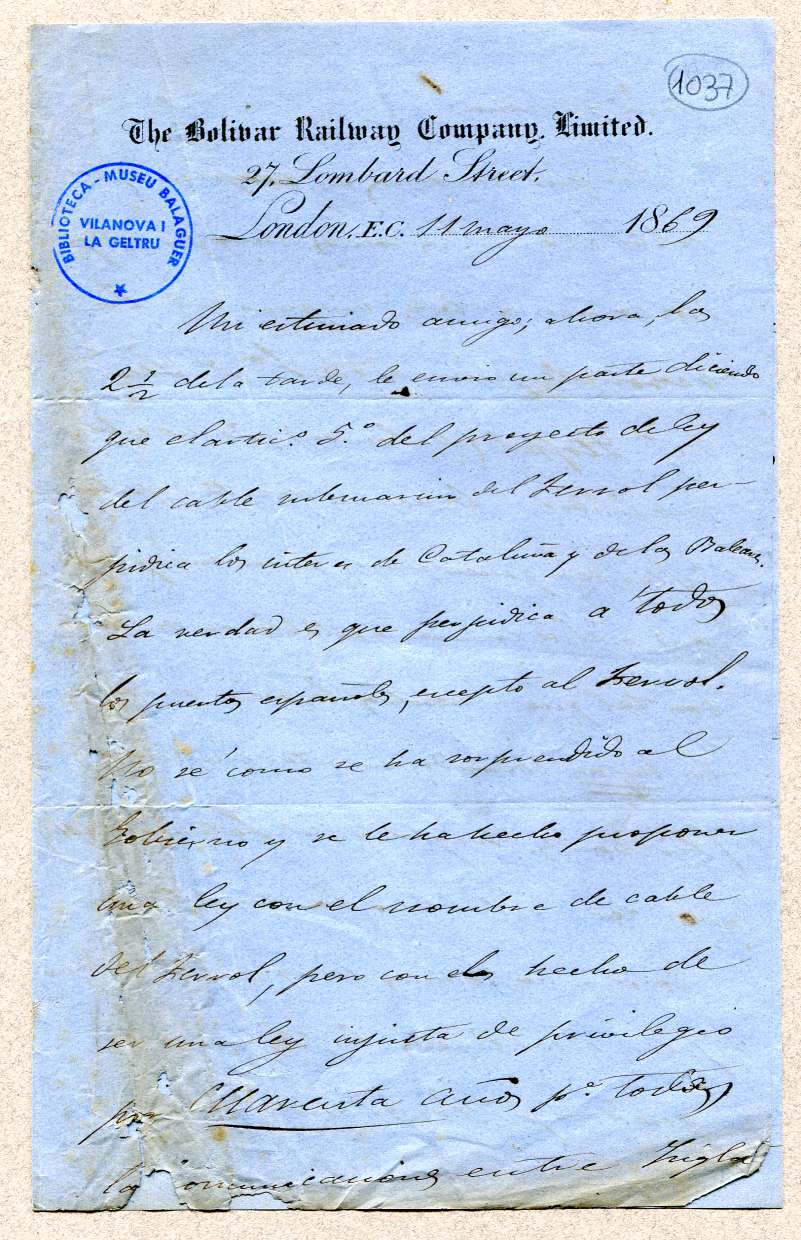 1037
The Bolivar Railway Company, Limited.
27, Lombard Street.
London, E.C. 11 mayo 1869
BIBLIOTECA - MUSEU BALAGUER
VILANOVA I
LA GELTRU
Mi estimado amigo; ahora, las
2 1/2 de la tarde, le envio un parte diciendo
que el artic.º 5.º del proyecto de ley
del cable submarin del Ferrol per-
judica los interes de Cataluña y de las Balear.
La verdad es que perjudica a todos
los puertos españoles, ecepto al Ferrol.
No sé como se ha sorprendido al
Gobierno y se le ha hecho proponer
una ley con el nombre de cable
del Ferrol, pero con el hecho de
ser una ley injusta de privilegio
por cuarenta años p.ª todas
las comunicaciones entre Ingla